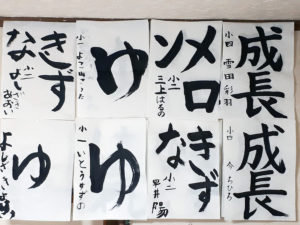 成長
小四 雪田 彩羽
メロン
小二 三上はるの
ゆ
小一
きずな
小二
成長
小四 今 ちひろ
きずな
小二 平井 陽
ゆ
小一 いとうすずの
ゆ